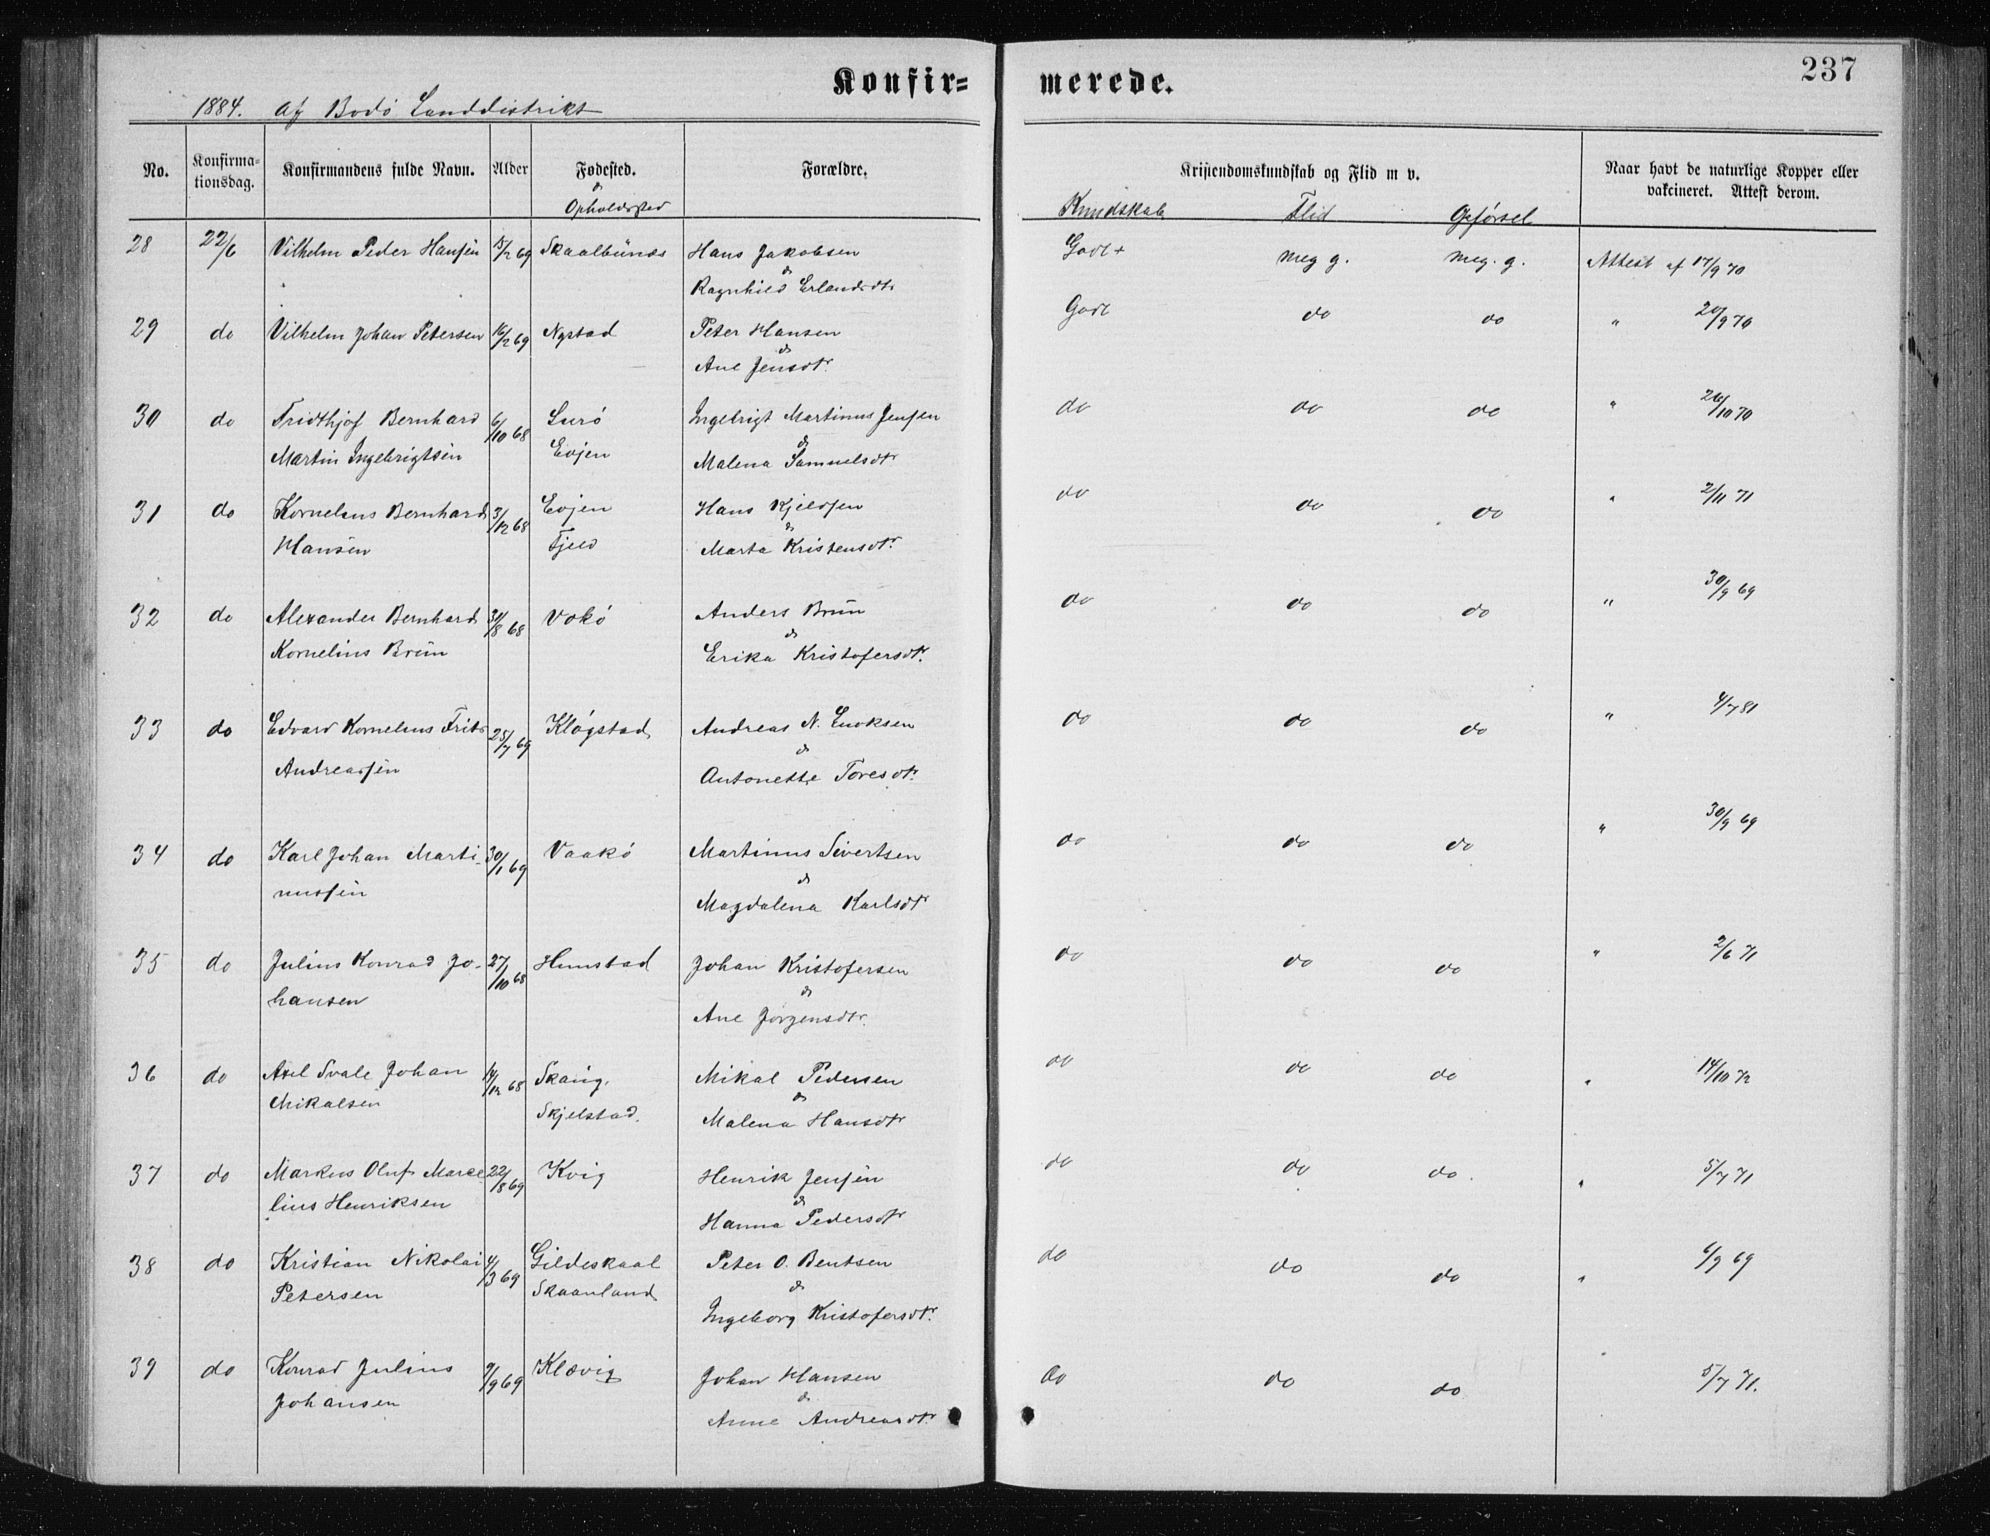 Konfir=
merede.
237
1884. Af Bodø Landdistrikt
No.
Konfirma-
tionsdag.
Konfirmandens fulde Navn.
Alder
Fødested.
&
Opholdssted
Forældre.
Kristendomskundskab og Flid m v.
Kundskab Flid Opførsel
Naar havt de naturlige Kopper eller
vakcineret. Attest derom.
28 22/6 Vilhelm Peder Hansen 15/2 69 Skaalbunes Hans Jakobsen Godt+ meg g. meg. g. Attest af 17/9 70
& Ragnhild Erlandsdtr
29 do Vilhelm Johan Petersen 16/2 69 Nystad Peter Hansen Godt do do " 20/9 70
& Ane Jensdtr.
30 do Fridthjof Bernhard 6/10 68 Lurø Ingebrigt Martinus Jensen do do do " 26/10 70
Martin Ingebrigtsen Evjen & Malena Samuelsdtr
31 do Kornelius Bernhard 3/12 68 Evjen Hans Kjeldsen do do do " 2/11 71
Hansen Fjeld & Marta Kristensdtr.
32 do Alexander Bernhard 31/8 68 Vokø Anders Brun do do do " 30/9 69
Kornelius Brun & Erika Kristofersdtr.
33 do Edvard Kornelius Frits 25/7 69 Kløgstad Andreas N. Enoksen do do do " 4/7 81
Andreassen & Antonette Toresdtr.
34 do Karl Johan Marti- 30/1 69 Vaakø Martinus Sivertsen do do do " 30/9 69
nussen & Magdalena Karlsdtr
35 do Julius Konrad Jo- 27/10 68 Hunstad Johan Kristofersen do do do " 2/6 71
hansen & Ane Jørgensdtr.
36 do Axel Svale Johan 14/12 68 Skaug. Mikal Pedersen do do do " 14/10 72
Mikalsen Skjelstad. & Malena Hansdtr
37 do Markus Oluf Marce 22/8 69 Kvig Henrik Jensen do do do " 5/7 71
lius Henriksen & Hanna Pedersdtr
38 do Kristian Nikolai 4/3 69 Gildeskaal Peter O. Bentsen do do do " 6/9 69
Petersen Skaanland & Ingeborg Kristofersdtr.
39 do Konrad Julius 9/9 69 Klævig Johan Hansen do do do 5/7 71.
Johansen & Anne Andreasdtr.